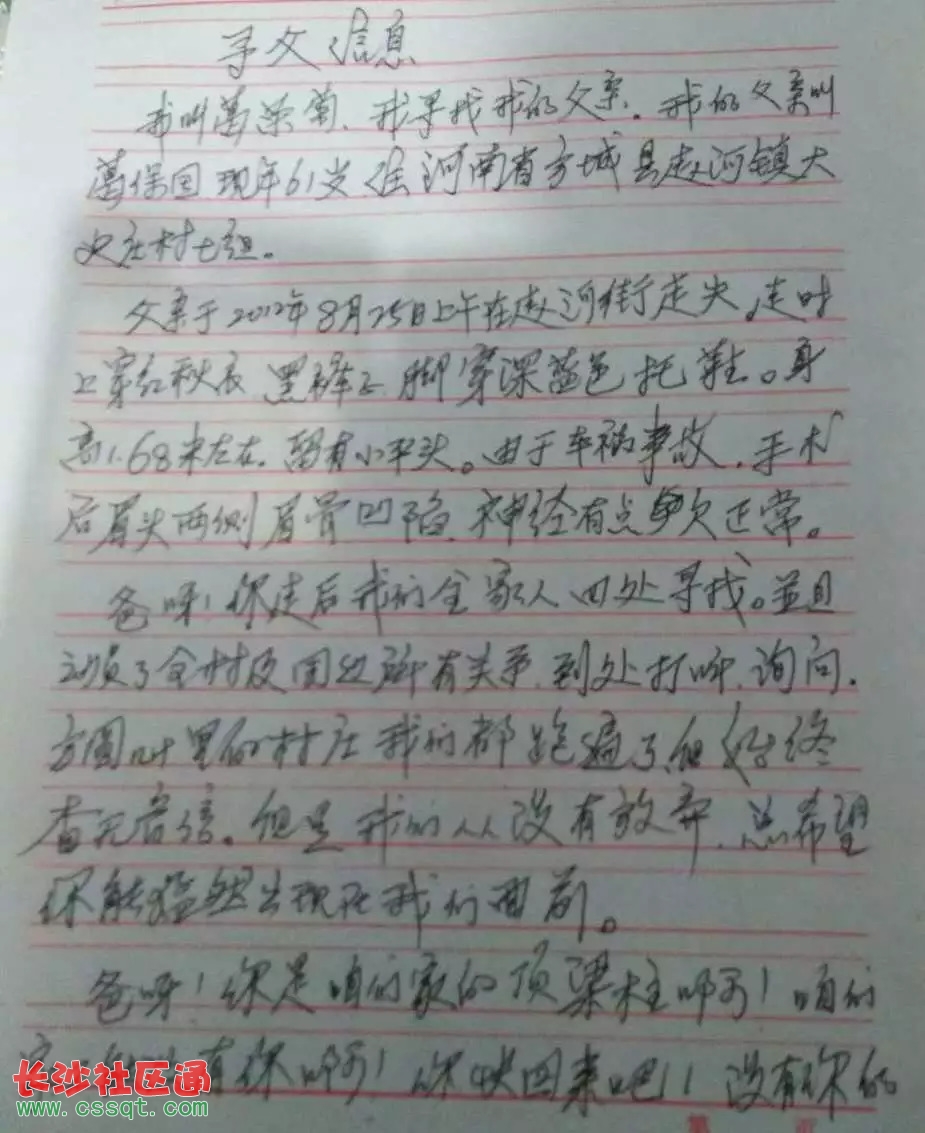 寻父信息
我叫葛荣菊、我寻找我的父亲.我的父亲叫
葛保国现年61岁 住河南省方城县赵河镇大
史庄村七组。
父亲于2012年8月25日上午在赵河街走失,走时
上穿红秋衣 黑裤子 脚穿深蓝色托鞋。身
高1.68米左右.留有小平头。由于车祸事故.手术
后眉头两侧眉骨凹陷.神经有点欠正常。
爸呀!你走后我们全家人四处寻找。并且
动员了全村及周边所有关系.到处打听.询问.
方圆几十里的村庄我们都跑遍了,但始终
杳无音信。但是我们从没有放弃.总希望
你能猛然出现在我们面前。
爸呀!你是咱们家的顶梁柱啊!咱们
家有你啊!你快回来吧!没有你的
长沙社区通
www.cssqt.com